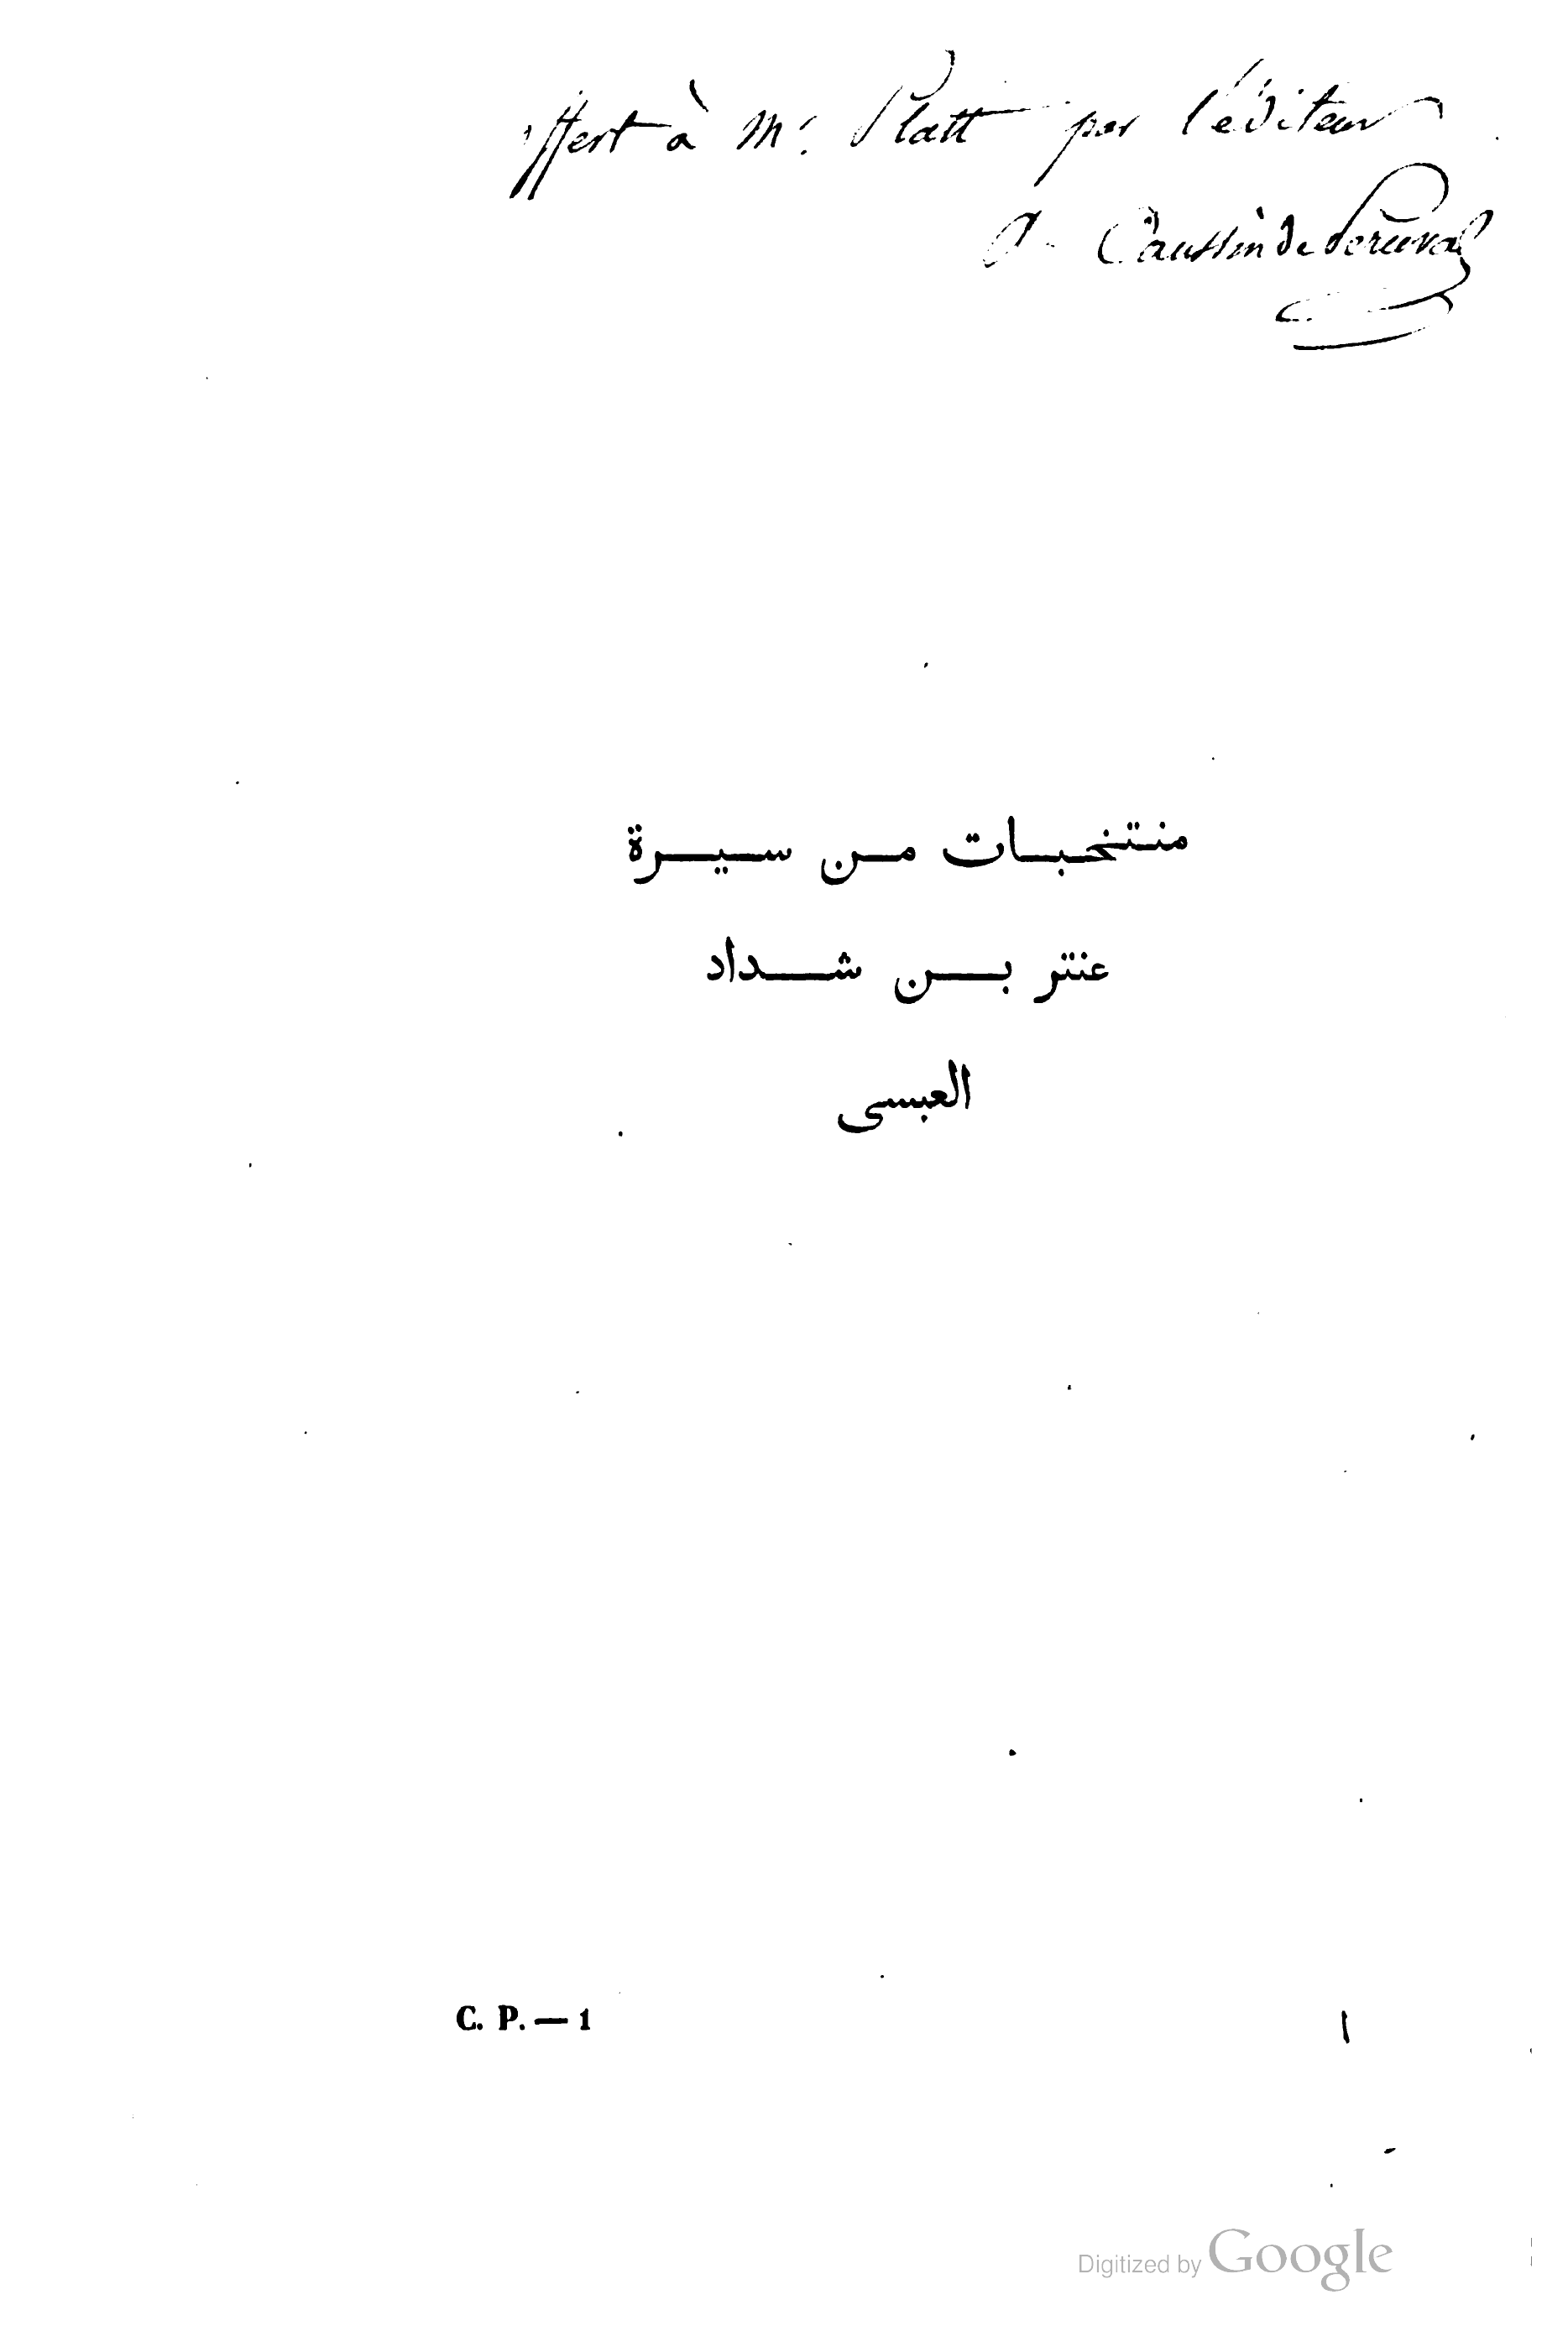 offert à Mr Platt par l'éditeur
A. Caussin de Perceval
منتخبات من سيرة
عنتر بن شداد
العبسى
C. P. — 1
١
Digitized by Google